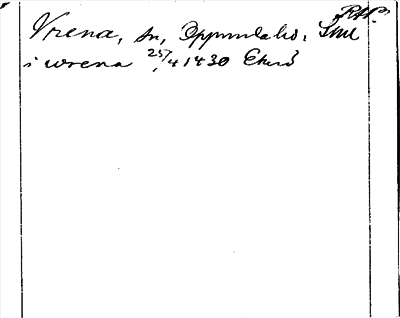 RAP.
Vrena, sn, Oppunda hd, Sml
i wrena 25/4 1430 Ekerö